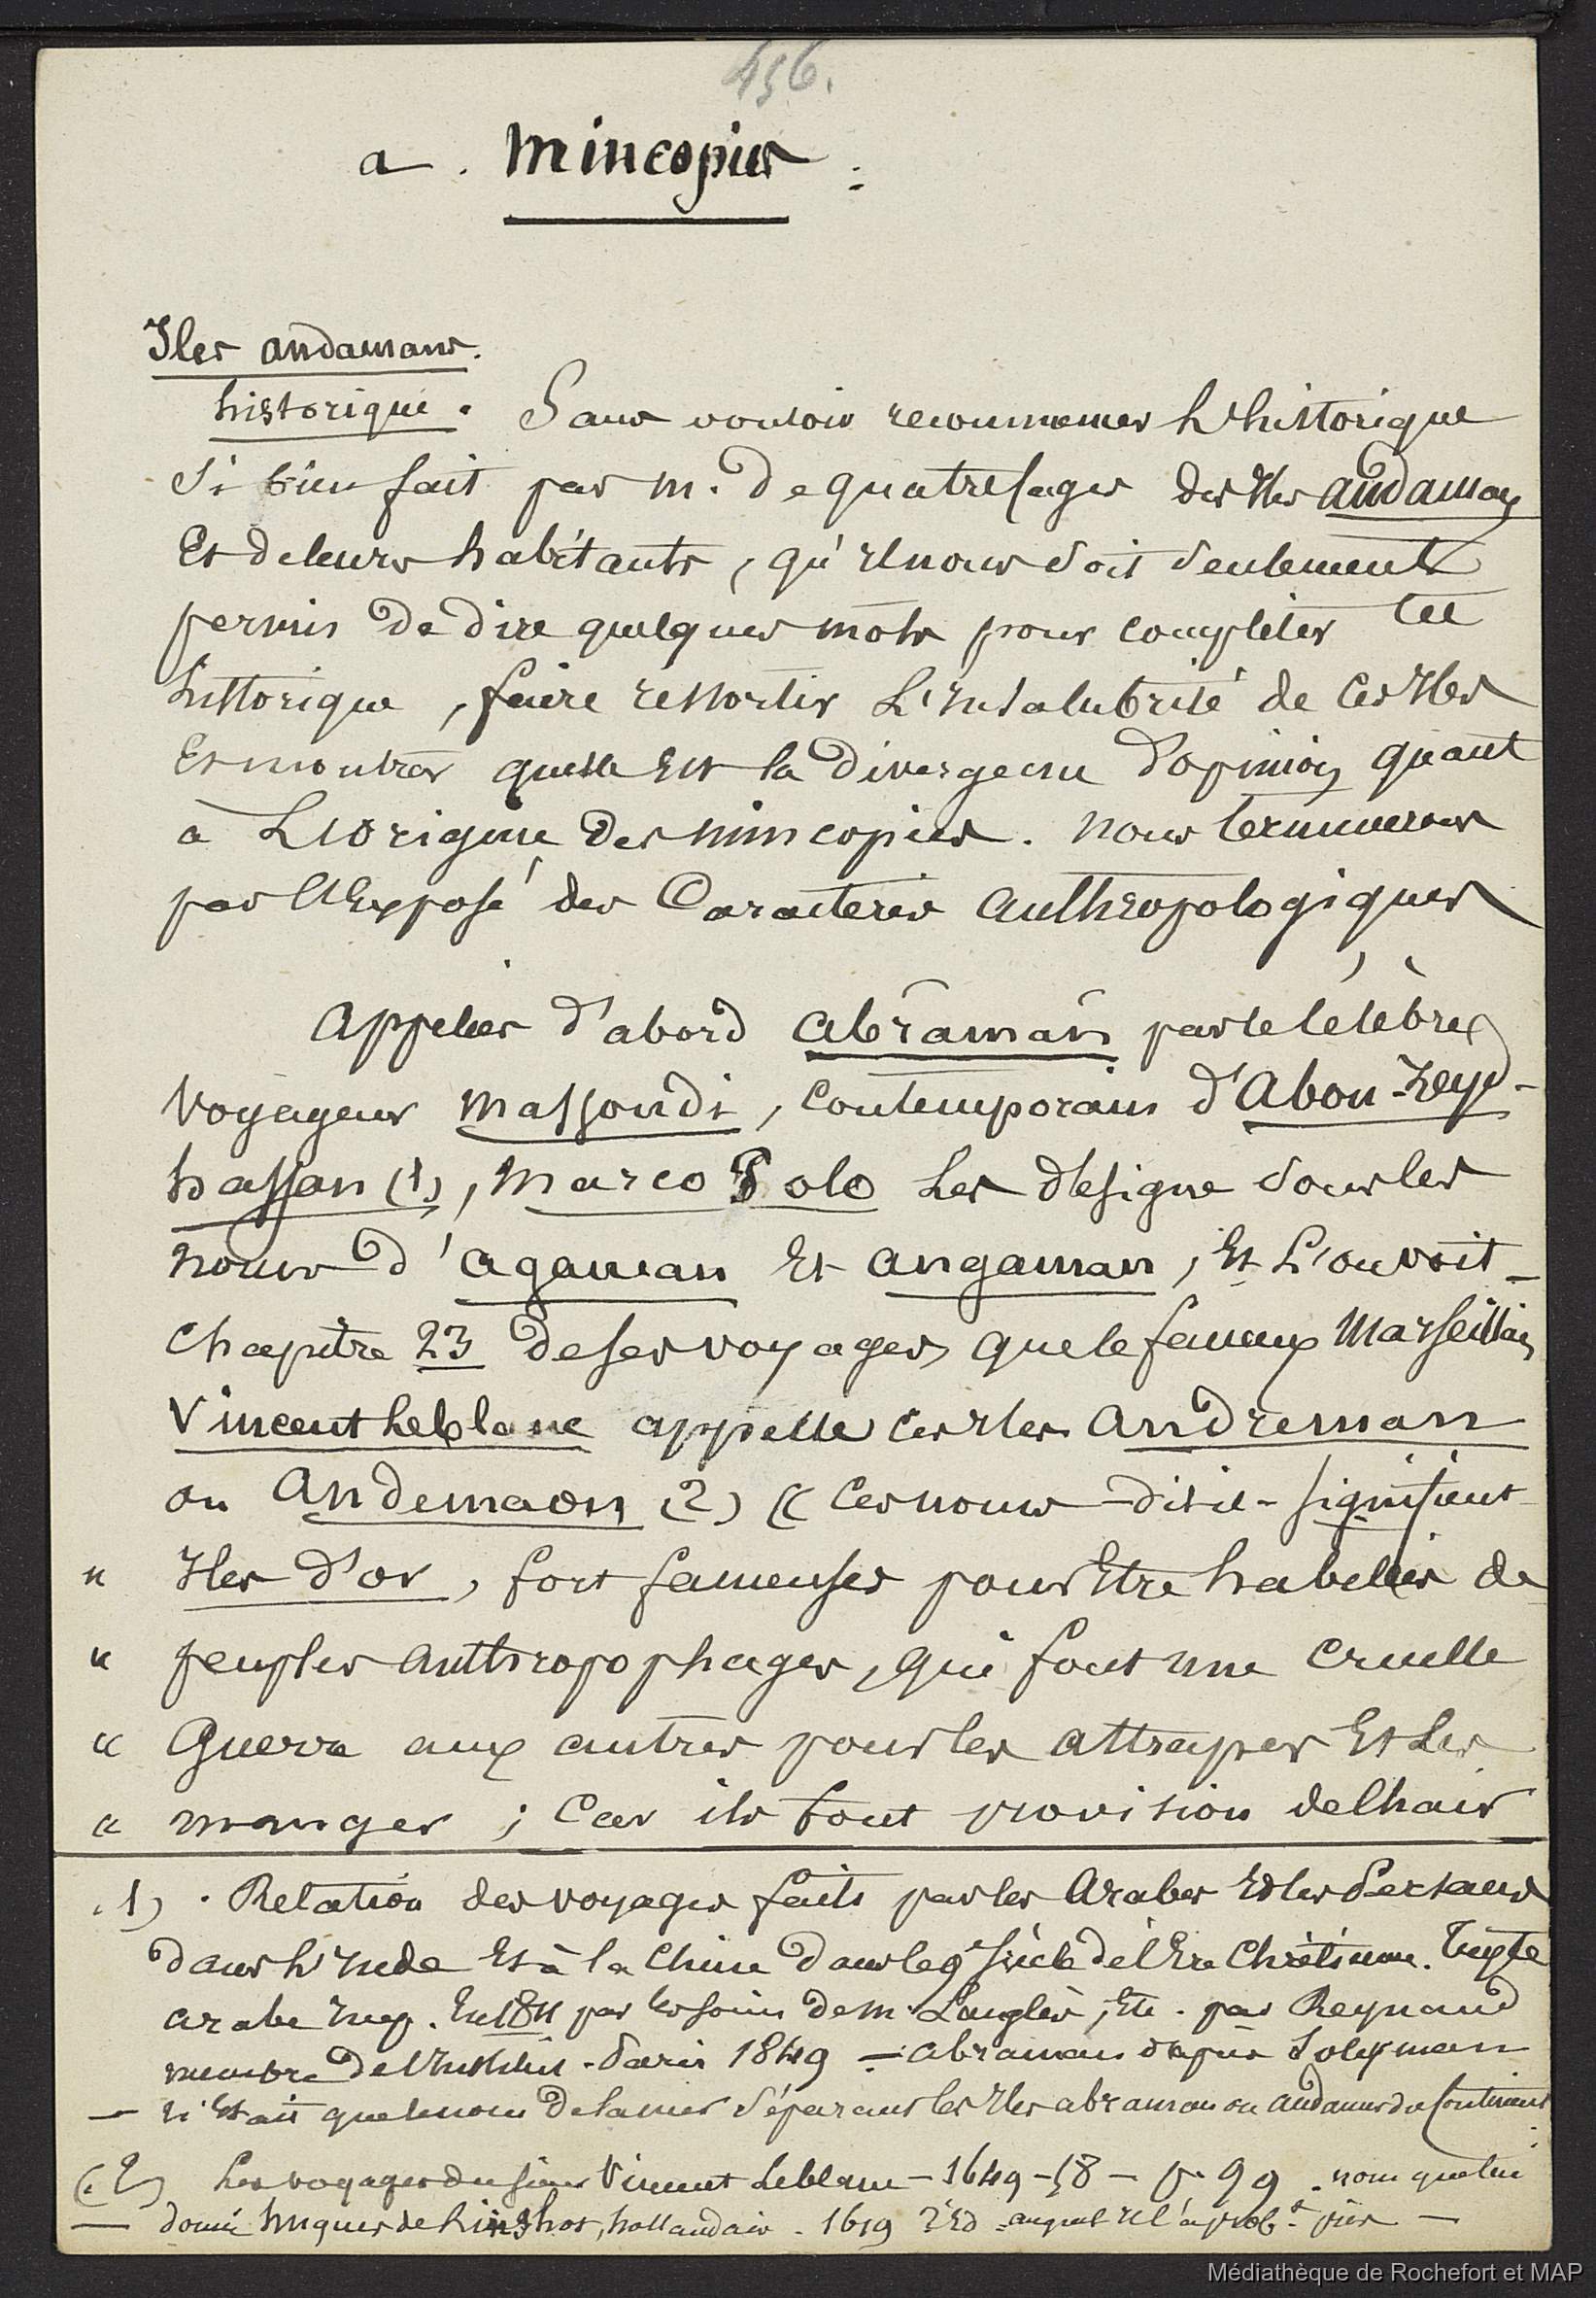 456.
a. Mincopies :
Iles andamans.
historique. Sans vouloir recommencer l'historique
si bien fait par M. de quatrefages des Iles andaman
Et de leurs habitants, qu'il nous soit seulement
permis de dire quelques mots pour compléter cet
historique, faire ressortir L'insalubrité de ces Iles
Et montrer quelle Est la divergence d'opinion quant
à L'origine des mincopies. nous terminerons
par l'Exposé des Caracteres anthropologiques
Appelées d'abord abraman par le célèbre
voyageur massoudi, contemporain d'abou-Zeyd-
hassan (1), Marco Polo les désigne sous les
noms d'agaman Et angaman, Et L'on voit
chapitre 23 de ses voyages, que le fameux Marseillais
Vincent Leblanc appelle ces Iles andreman
ou Andemaon (2) « Ces noms - dit-il - signifient
« Iles d'or, fort fameuses pour Etre habitées de
« peuples anthropophages, qui font une cruelle
« Guerre aux autres pour les attraper Et les
« manger ; car ils font provision de chair
1) . Relation des voyages faits par les Arabes Et les Persans
dans L'Inde Et à la Chine dans le 9e siècle de l'Ere Chrétienne. Texte
arabe Imp. En 1811 par les soins de M. Langlès, Etc. par Reynaud
membre de l'Institut - Paris 1849 — abraman d'après Soleyman
— n'Etait que le nom de la mer séparant les Iles abraman ou andamans du Continent
(2) Les voyages du sieur Vincent Leblanc - 1649 - 58 - p. 99 . nom que lui
— donne hugues de Linshot, hollandais . 1619 2e Ed - auquel il l'a prob.t pris —
Médiathèque de Rochefort et MAP